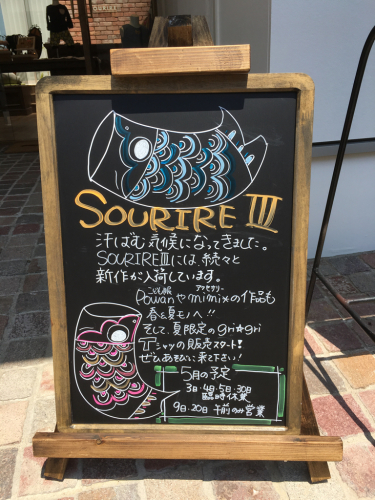 SOURIRE III
汗ばむ気候になってきました。
SOURIREIIIには、続々と
新作が入荷しています。
こども服 アクセサリー
Dowanやmimixの作品も
春&夏モノへ!!
そして、夏限定のgri*gri
Tシャツの販売スタート!
ぜひあそびに来て下さい!
5月の予定
3日・4日・5日・30日
臨時休業
9日・20日 午前のみ営業